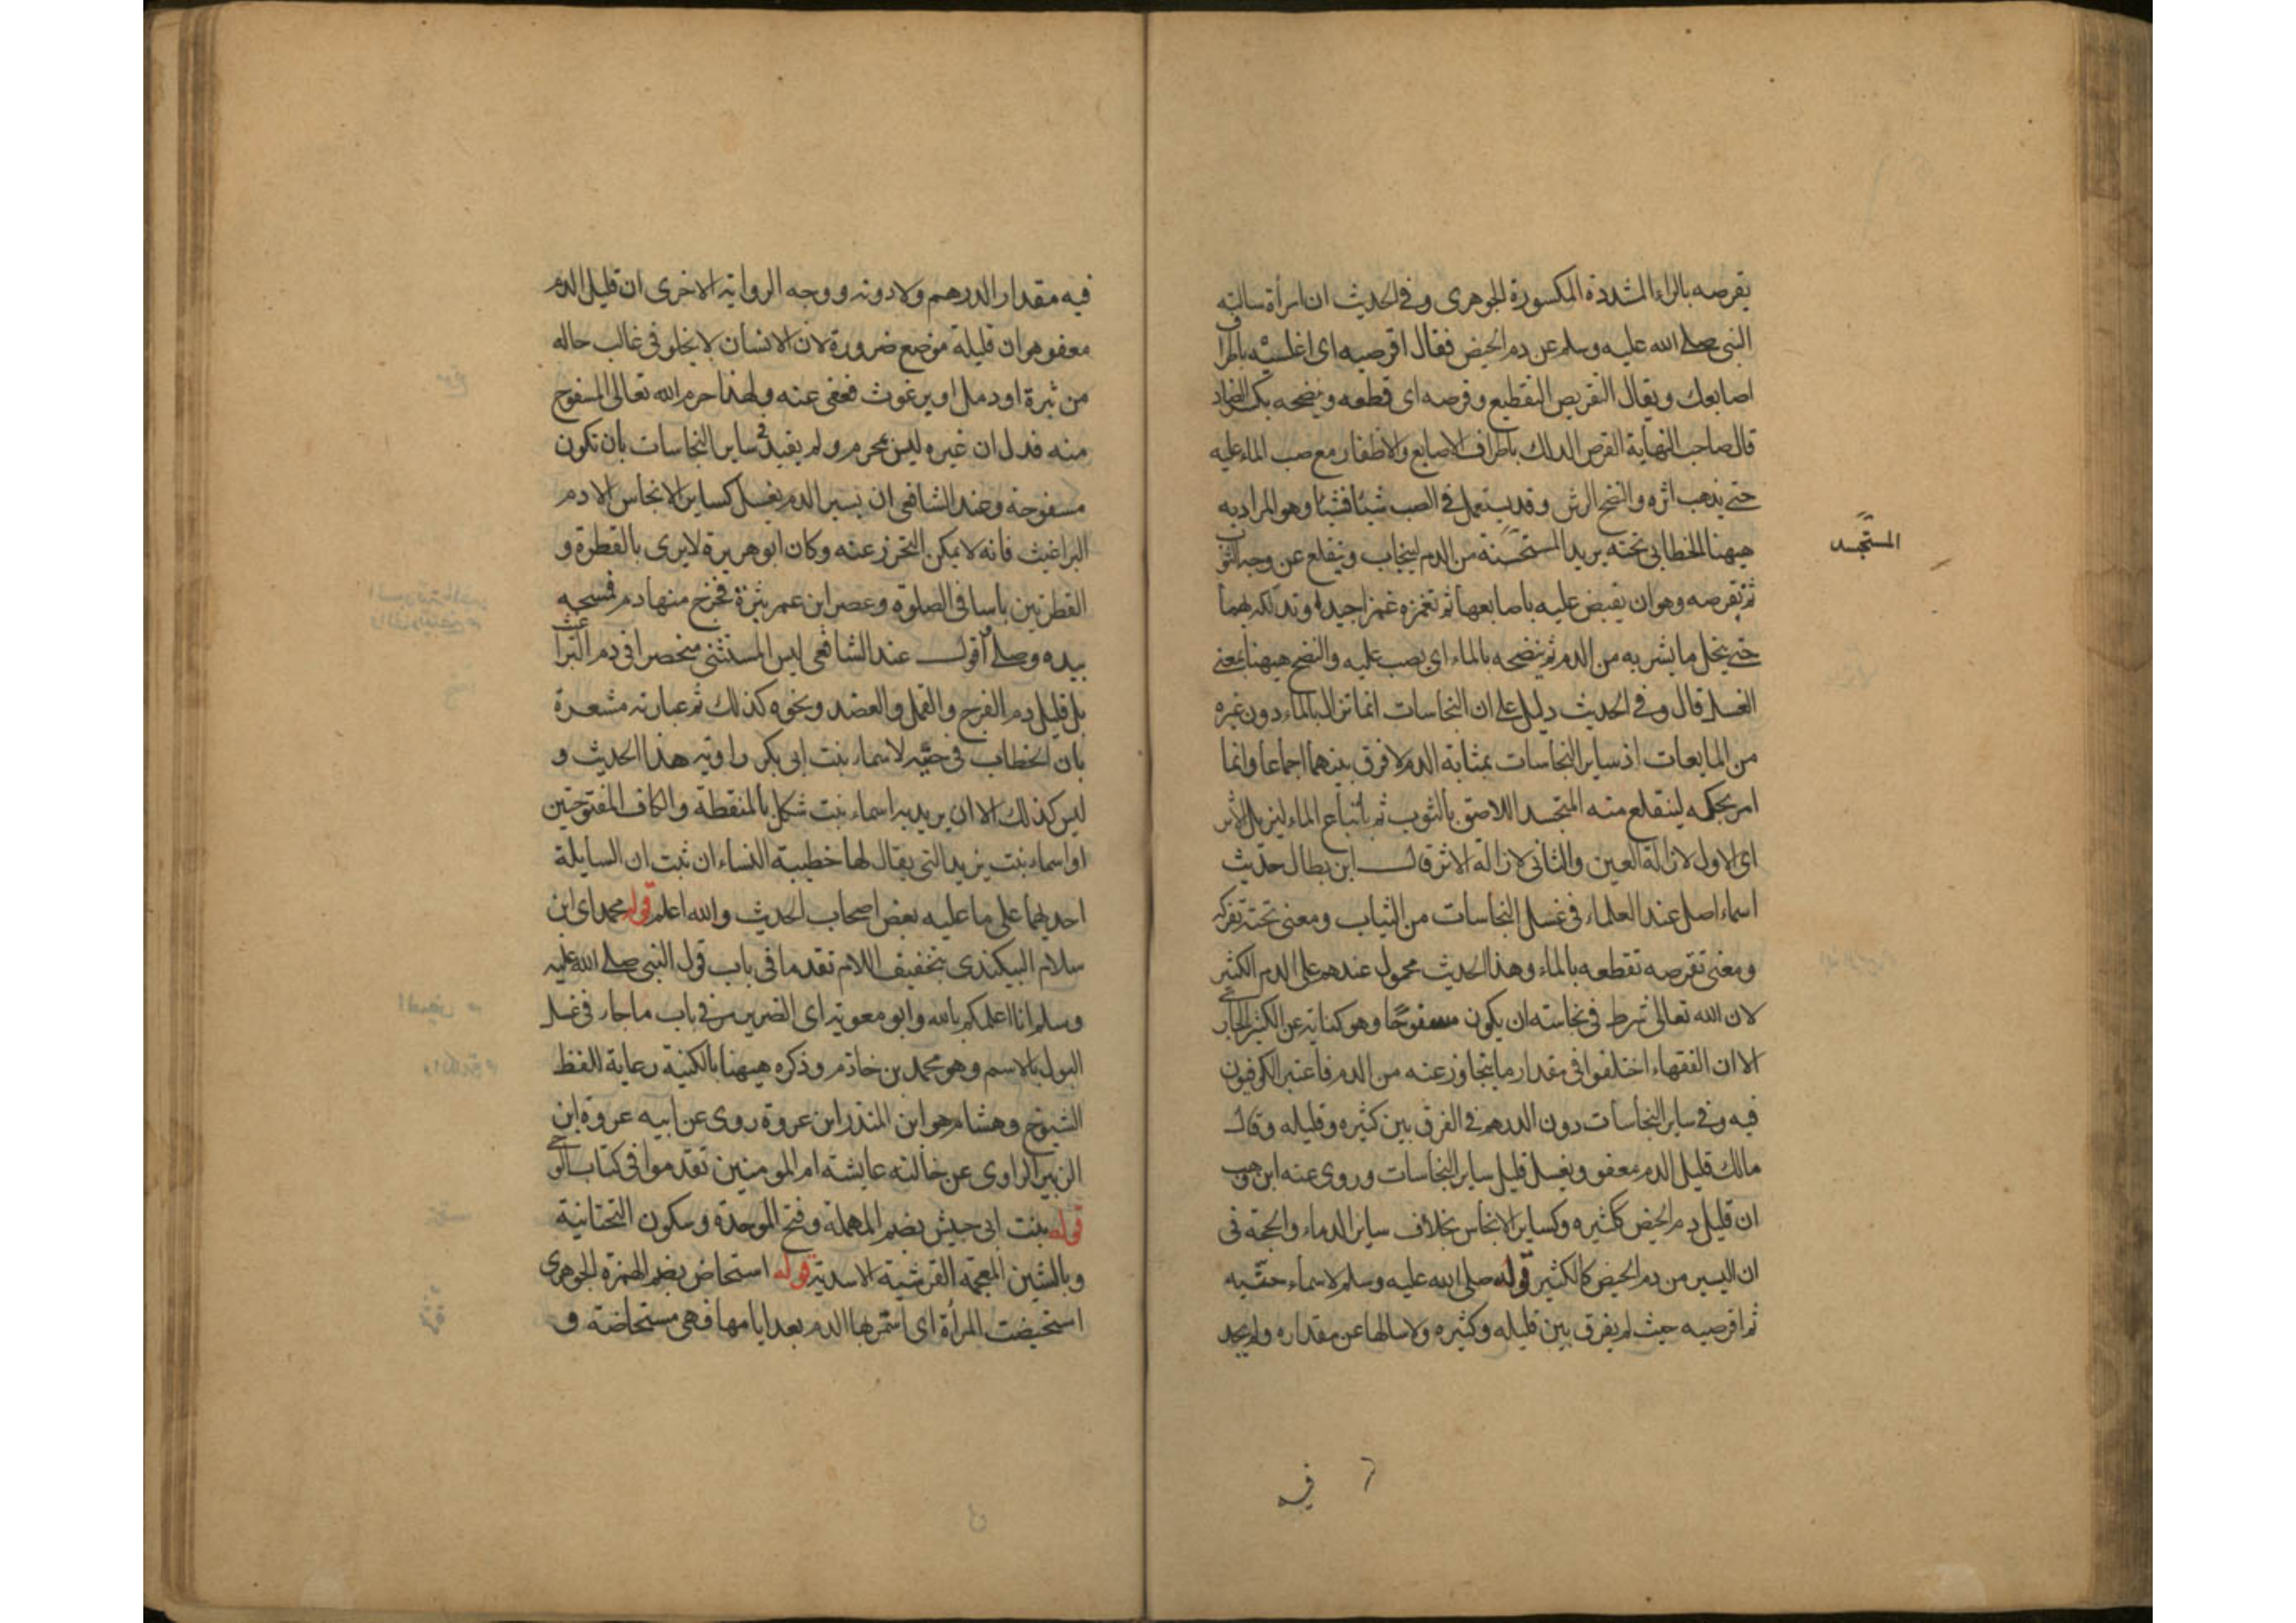 يقرصه بالراء المشددة المكسورة الجوهرى وفى الحديث ان امرأة سالت
النبى صلى الله عليه وسلم عن دم الحيض فقال اقرصيه اى اغسليه باطراف
اصابعك ويقال التقريص التقطيع وقرصه اى قطعه وينضحه بكسر الضاد
قال صاحب النهاية القرص الدلك باطراف الاصابع والاظفار مع صب الماء عليه
حتى يذهب اثره والنضح الرش وقد يستعمل فى الصب شيئا فشيئا وهو المراد به
هيهنا الخطابى تحته يريد المستحسنة من الدم لينجاب وينقلع عن وجه الثوب
المستجسد
ثم تقرصه وهو ان يقبض عليه باصابعها ثم تغمزه غمزا جيدا وتدلكه بهما
حتى ينحل ما يشربه من الدم ثم ينضحه بالماء اى يصب عليه والنضح هيهنا بمعنى
الغسل قال وفى الحديث دليل على ان النجاسات انما تزال بالماء دون غيره
من المايعات اذ ساير النجاسات بمثابة الدم لا فرق بينهما اجماعا وانما
امر بحكه لينقلع منه المتجسد اللاصق بالثوب ثم باتباع الماء ليزيل الاثر
اى الاول لازالة العين والثانى لازالة الاثر قال ابن بطال حديث
اسماء اصل عند العلماء فى غسل النجاسات من الثياب ومعنى تحته تفركه
ومعنى تقرصه تقطعه بالماء وهذا الحديث محمول عندهم على الدم الكثير
لان الله تعالى شرط فى نجاسته ان يكون مسفوحا وهو كناية عن الكثير الجارى
الا ان الفقهاء اختلفوا فى مقدار ما يتجاوز عنه من الدم فاعتبر الكوفيون
فيه وفى ساير النجاسات دون الدرهم فى الفرق بين كثيره وقليله وقال
مالك قليل الدم معفو ويغسل قليل ساير النجاسات وروى عنه ابن وهب
ان قليل دم الحيض ككثيره وكساير الانجاس بخلاف ساير الدماء والحجة فى
ان اليسير من دم الحيض كالكثير قوله صلى الله عليه وسلم لاسماء حتيه
ثم اقرصيه حيث لم يفرق بين قليله وكثيره ولا سالها عن مقداره ولم يحد
فيه
فيه مقدار الدرهم ولا دونه ووجه الرواية الاخرى ان قليل الدم
معفو هو ان قليله موضع ضرورة لان الانسان لا يخلو فى غالب حاله
من بثرة او دمل او برغوث فعفى عنه ولهذا حرم الله تعالى المسفوح
منه فدل ان غيره ليس بمحرم ولم يقيد فى ساير النجاسات بان تكون
مسفوحة وعند الشافعى ان يسير الدم يغسل كساير الانجاس الا دم
البراغيث فانه لا يمكن التحرز عنه وكان ابو هريرة لا يرى بالقطرة و
القطرتين باسا فى الصلوة وعصر ابن عمر بثرة فخرج منها دم فمسحه
بيده وصلى اقول عند الشافعى ليس المستثنى منحصرا فى دم البراغيث
بل قليل دم القرح والقمل والفصد ونحوه كذلك ثم عبارته مشعرة
بان الخطاب فى حتيه لاسماء بنت ابى بكر راوية هذا الحديث و
ليس كذلك الا ان يريد به اسماء بنت شكل بالمنقطة والكاف المفتوحتين
او اسماء بنت يزيد التى يقال لها خطيبة النساء ان ثبت ان السايلة
احديهما على ما عليه بعض اصحاب الحديث والله اعلم قوله محمد اى ابن
سلام البيكندى بتخفيف اللام تقدما فى باب قول النبى صلى الله عليه
وسلم انا اعلمكم بالله وابو معوية اى الضرير مر فى باب ما جاء فى غسل
البول بالاسم وهو محمد بن خازم وذكره هيهنا بالكنية رعاية للفظ
الشيوخ وهشام هو ابن المنذر ابن عروة روى عن ابيه عروة ابن
الزبير الراوى عن خالته عايشة ام المومنين تقدموا فى كتاب الوحى
قوله بنت ابى حبيش بضم المهملة وفتح الموحدة وسكون التحتانية
وبالشين المعجمة القرشية الاسدية قوله استحاض بضم الهمزة الجوهرى
استحيضت المرأة اى استمر بها الدم بعد ايامها فهى مستحاضة و